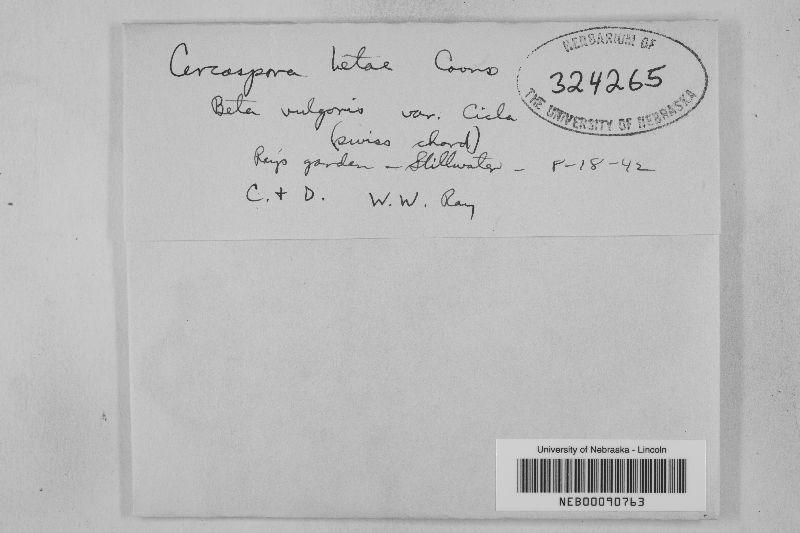 Cercospora betae Coons
Beta vulgaris var. Cicla
(swiss chard)
Ray's garden - Stillwater - 8-18-42
C. + D. W. W. Ray
HERBARIUM OF
324265
THE UNIVERSITY OF NEBRASKA
University of Nebraska - Lincoln
NEB00090763